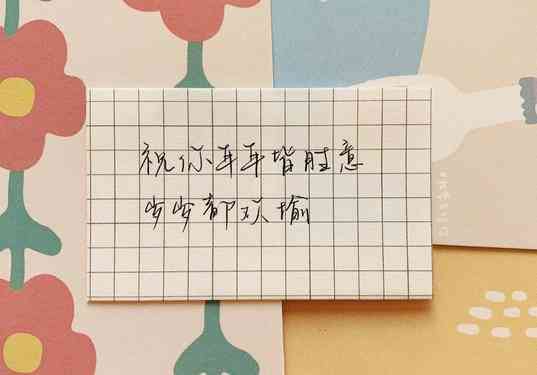 祝你年年皆胜意
岁岁都欢愉